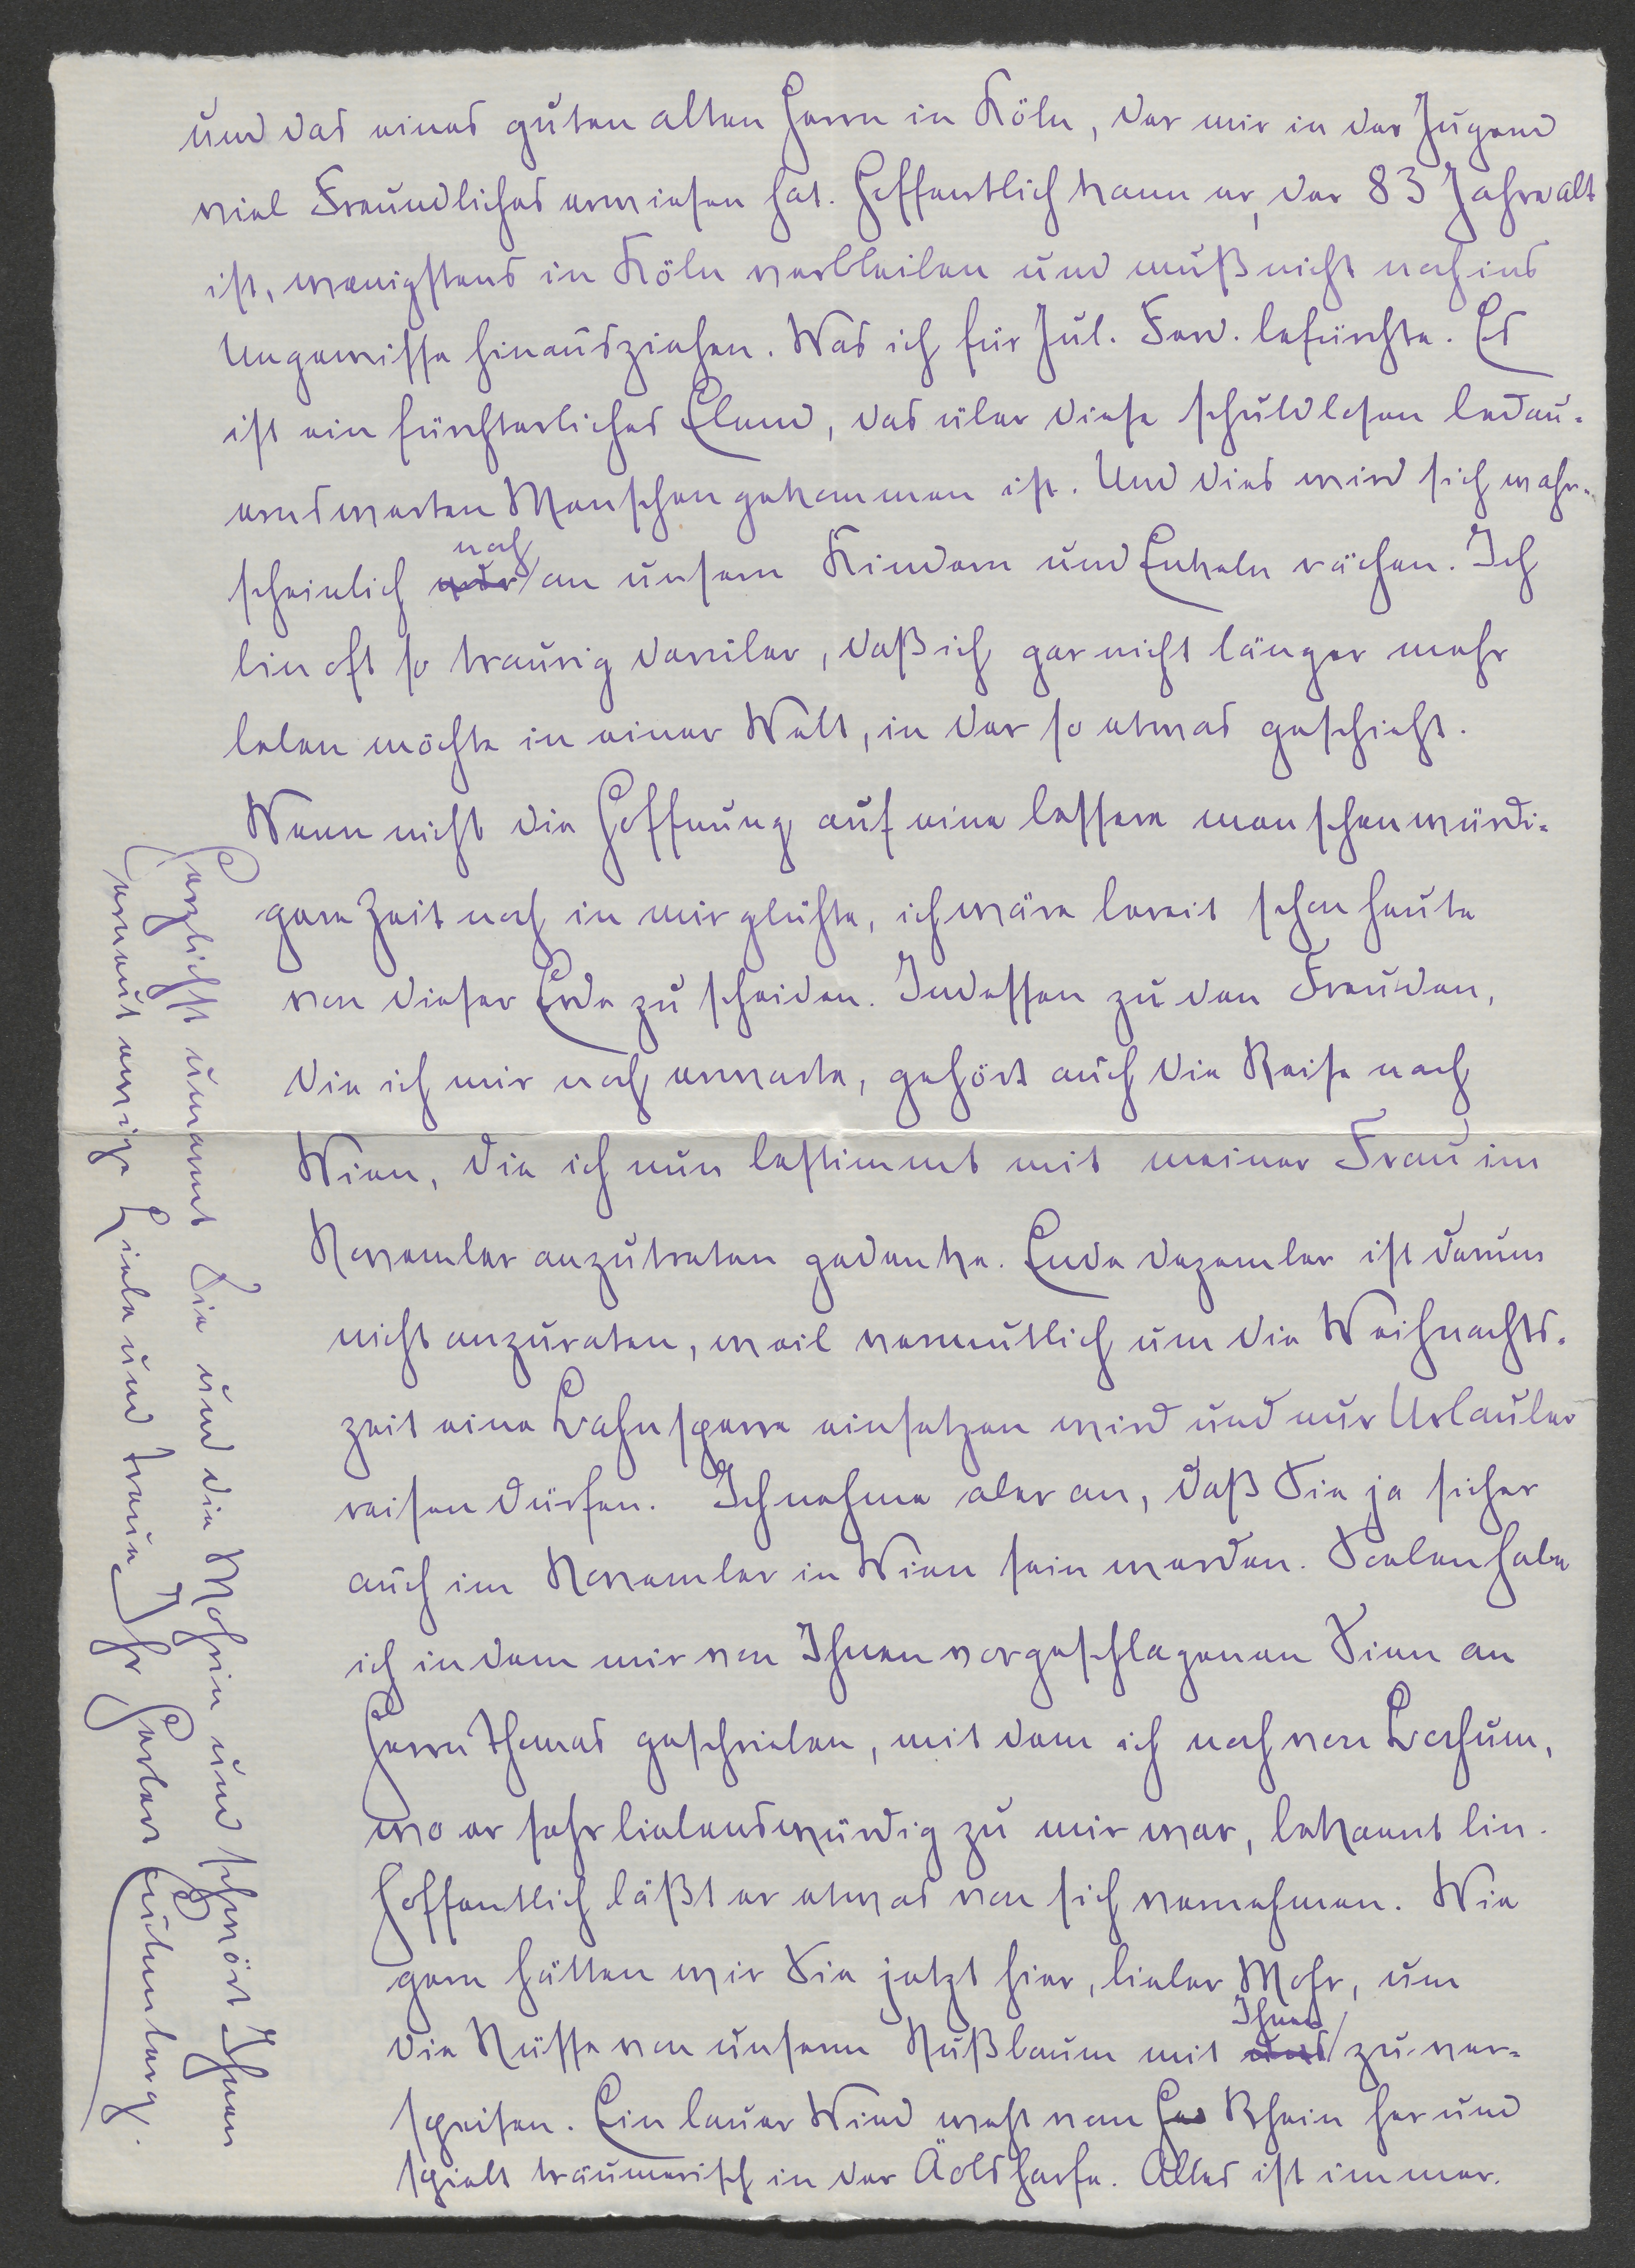 und das eines guten alten Herrn in Köln, der mir in der Jugend
viel Freundliches erwiesen hat. Hoffentlich kann er, der 83 Jahre alt
ist, wenigstens in Köln verbleiben und muß nicht noch ins
Ungewisse hinausziehen. Was ich für Jul. Ferd. befürchte. Es
ist ein fürchterliches Elend, das über diese schuldlosen bedau-
ernswerten Menschen gekommen ist. Und dies wird sich wahr-
scheinlich noch an unsern Kindern und Enkeln rächen. Ich
bin oft so traurig darüber, daß ich gar nicht länger mehr
leben möchte in einer Welt, in der so etwas geschieht.
Wenn nicht die Hoffnung auf eine bessere menschenwürdi-
gere Zeit noch in mir glühte, ich wäre bereit schon heute
von dieser Erde zu scheiden. Indessen zu den Freuden,
die ich mir noch erwarte, gehört auch die Reise nach
Wien, die ich nun bestimmt mit meiner Frau im
November anzutreten gedenke. Ende Dezember ist darum
nicht anzuraten, weil vermutlich um die Weihnachts-
zeit eine Bahnsperre einsetzen wird und nur Urlauber
reisen dürfen. Ich nehme aber an, daß Sie ja sicher
auch im November in Wien sein werden. Soeben habe
ich in dem mir von Ihnen vorgeschlagenen Sinn an
Herrn Thomas geschrieben, mit dem ich noch von Bochum,
wo er sehr liebenswürdig zu mir war, bekannt bin.
Hoffentlich läßt er etwas von sich vernehmen. Wie
gern hätten wir Sie jetzt hier, lieber Mohr, um
die Nüsse von unserm Nußbaum mit Ihnen zu ver-
speisen. Ein lauer Wind weht vom Rhein her und
spielt träumerisch in der Äolsharfe. Alles ist immer.
Herzlichst umarmt Sie und die Mohrin und schwört Ihnen
erneut ewige Liebe und Treue Ihr Herbert Eulenberg.